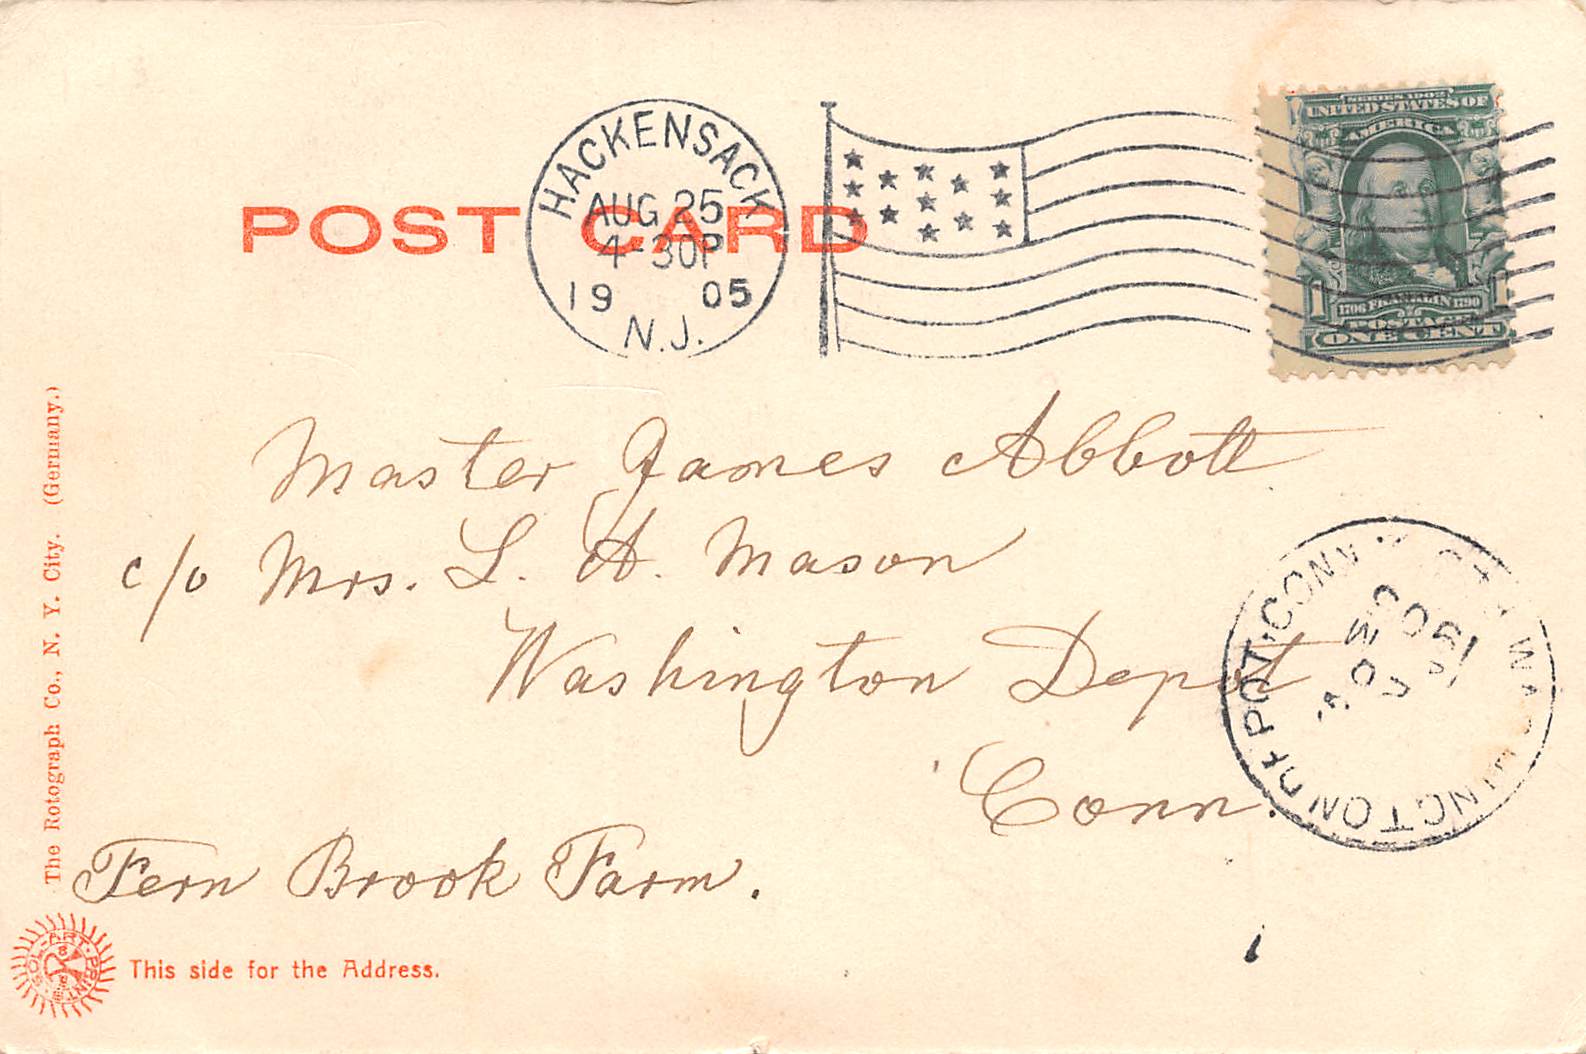 POST CARD
HACKENSACK
AUG 25
4-30P
19 05
N.J.
SERIES 1902
UNITED STATES OF
AMERICA
1 1
1706 FRANKLIN 1790
POSTAGE
ONE CENT
Master James Abbott
c/o Mrs. L. A. Mason
Washington Depot
Conn.
Fern Brook Farm.
WASHINGTON DEPOT. CONN.
1905
The Rotograph Co., N. Y. City. (Germany.)
SOL-ART PRINTS
This side for the Address.